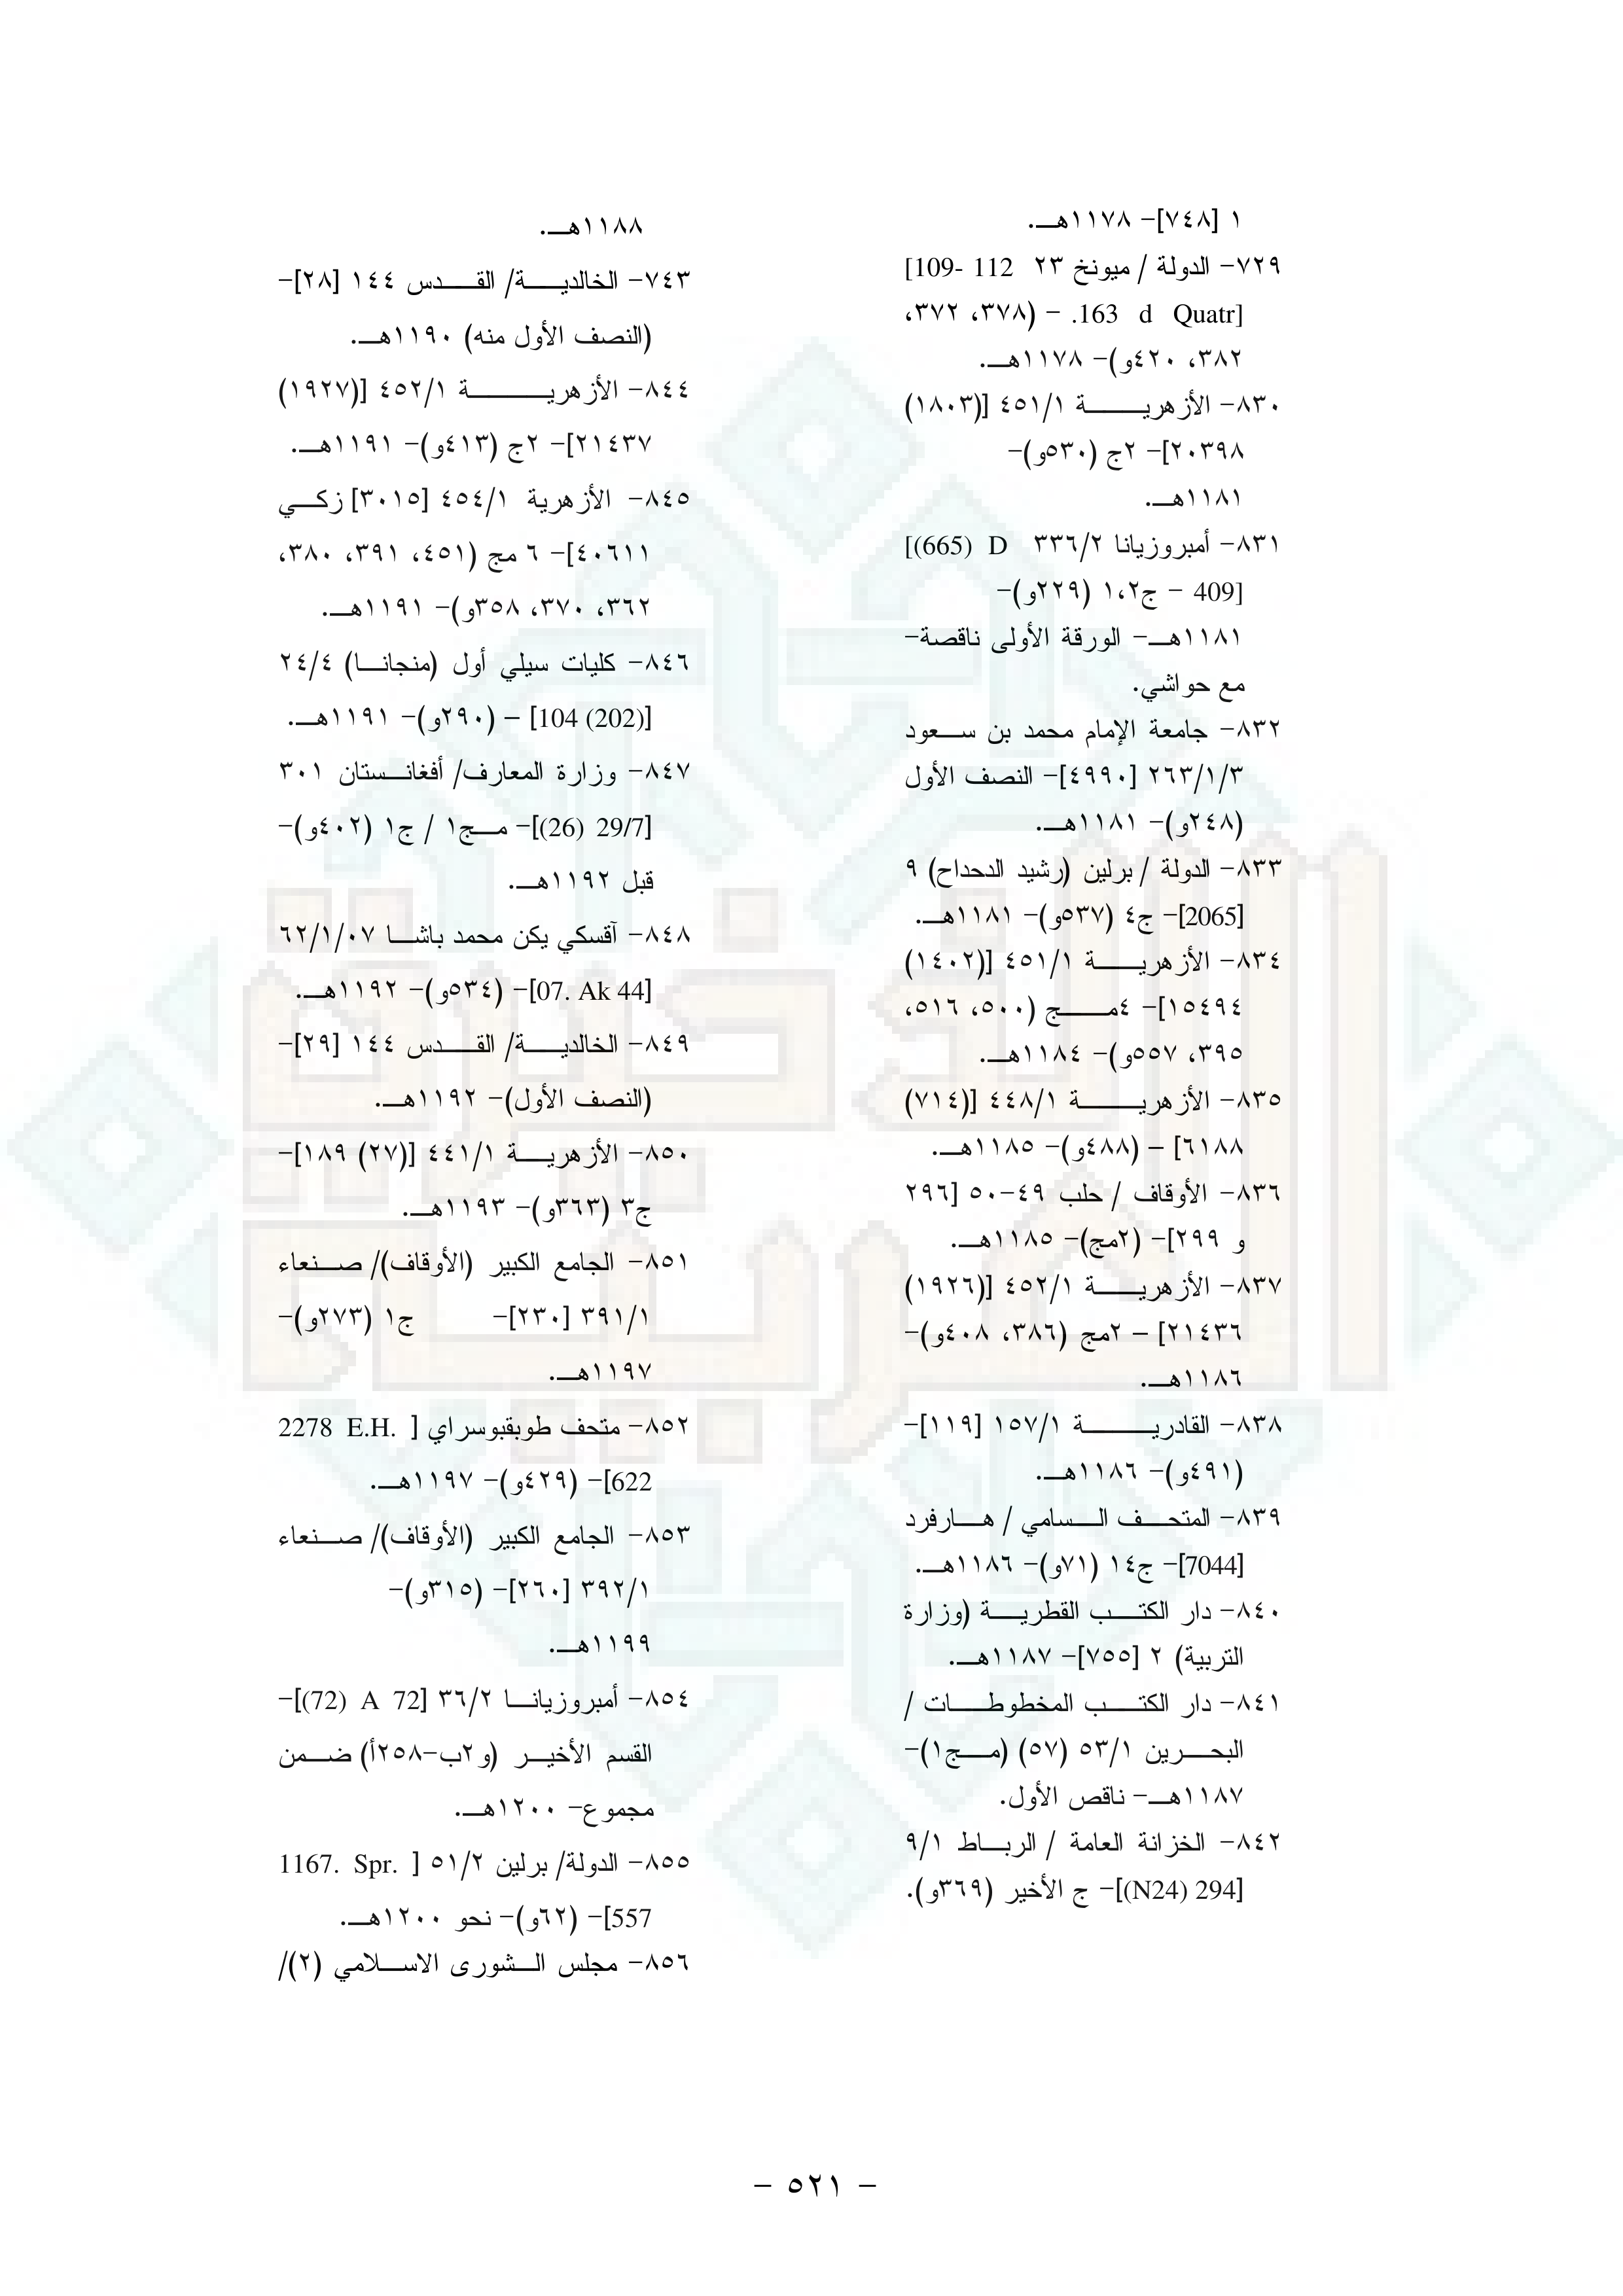 ١ [٧٤٨]- ١١٧٨هـ.
٧٢٩- الدولة / ميونخ ٢٣ 112 -109]
[163 d Quatr. - (٣٧٨، ٣٧٢،
٣٨٢، ٤٢٠و)- ١١٧٨هـ.
٨٣٠- الأزهرية ٤٥١/١ [(١٨٠٣)
٢٠٣٩٨]- ٢ج (٥٣٠و)-
١١٨١هـ.
٨٣١- أمبروزيانا ٣٣٦/٢ D (665)]
[409 - ج١،٢ (٢٢٩و)-
١١٨١هـ- الورقة الأولى ناقصة-
مع حواشي.
٨٣٢- جامعة الإمام محمد بن سعود
٢٦٣/١/٣ [٤٩٩٠]- النصف الأول
(٢٤٨و)- ١١٨١هـ.
٨٣٣- الدولة / برلين (رشيد الدحداح) ٩
[2065]- ج٤ (٥٣٧و)- ١١٨١هـ.
٨٣٤- الأزهرية ٤٥١/١ [(١٤٠٢)
١٥٤٩٤]- ٤مج (٥٠٠، ٥١٦،
٣٩٥، ٥٥٧و)- ١١٨٤هـ.
٨٣٥- الأزهرية ٤٤٨/١ [(٧١٤)
٦١٨٨] – (٤٨٨و)- ١١٨٥هـ.
٨٣٦- الأوقاف / حلب ٤٩-٥٠ [٢٩٦
و ٢٩٩]- (٢مج)- ١١٨٥هـ.
٨٣٧- الأزهرية ٤٥٢/١ [(١٩٢٦)
٢١٤٣٦] – ٢مج (٣٨٦، ٤٠٨و)-
١١٨٦هـ.
٨٣٨- القادرية ١٥٧/١ [١١٩]-
(٤٩١و)- ١١٨٦هـ.
٨٣٩- المتحف السامي / هارفرد
[7044]- ج١٤ (٧١و)- ١١٨٦هـ.
٨٤٠- دار الكتب القطرية (وزارة
التربية) ٢ [٧٥٥]- ١١٨٧هـ.
٨٤١- دار الكتب المخطوطات /
البحرين ٥٣/١ (٥٧) (مج١)-
١١٨٧هـ- ناقص الأول.
٨٤٢- الخزانة العامة / الرباط ٩/١
[294 (N24)]- ج الأخير (٣٦٩و).
١١٨٨هـ.
٧٤٣- الخالدية/ القدس ١٤٤ [٢٨]-
(النصف الأول منه) ١١٩٠هـ.
٨٤٤- الأزهرية ٤٥٢/١ [(١٩٢٧)
٢١٤٣٧]- ٢ج (٤١٣و)- ١١٩١هـ.
٨٤٥- الأزهرية ٤٥٤/١ [٣٠١٥] زكي
٤٠٦١١]- ٦ مج (٤٥١، ٣٩١، ٣٨٠،
٣٦٢، ٣٧٠، ٣٥٨و)- ١١٩١هـ.
٨٤٦- كليات سيلي أول (منجانا) ٢٤/٤
[104 (202)] – (٢٩٠و)- ١١٩١هـ.
٨٤٧- وزارة المعارف/ أفغانستان ٣٠١
[29/7 (26)]- مج١ / ج١ (٤٠٢و)-
قبل ١١٩٢هـ.
٨٤٨- آقسكي يكن محمد باشا ٦٢/١/٠٧
[07. Ak 44]- (٥٣٤و)- ١١٩٢هـ.
٨٤٩- الخالدية/ القدس ١٤٤ [٢٩]-
(النصف الأول)- ١١٩٢هـ.
٨٥٠- الأزهرية ٤٤١/١ [(٢٧) ١٨٩]-
ج٣ (٣٦٣و)- ١١٩٣هـ.
٨٥١- الجامع الكبير (الأوقاف)/ صنعاء
٣٩١/١ [٢٣٠]- ج١ (٢٧٣و)-
١١٩٧هـ.
٨٥٢- متحف طوبقبوسراي [ 2278 E.H.
622]- (٤٢٩و)- ١١٩٧هـ.
٨٥٣- الجامع الكبير (الأوقاف)/ صنعاء
٣٩٢/١ [٢٦٠]- (٣١٥و)-
١١٩٩هـ.
٨٥٤- أمبروزيانا ٣٦/٢ [72 A (72)]-
القسم الأخير (و٢ب-٢٥٨أ) ضمن
مجموع- ١٢٠٠هـ.
٨٥٥- الدولة/ برلين ٥١/٢ [ 1167. Spr.
557]- (٦٢و)- نحو ١٢٠٠هـ.
٨٥٦- مجلس الشورى الاسلامي (٢)/
- ٥٢١ -